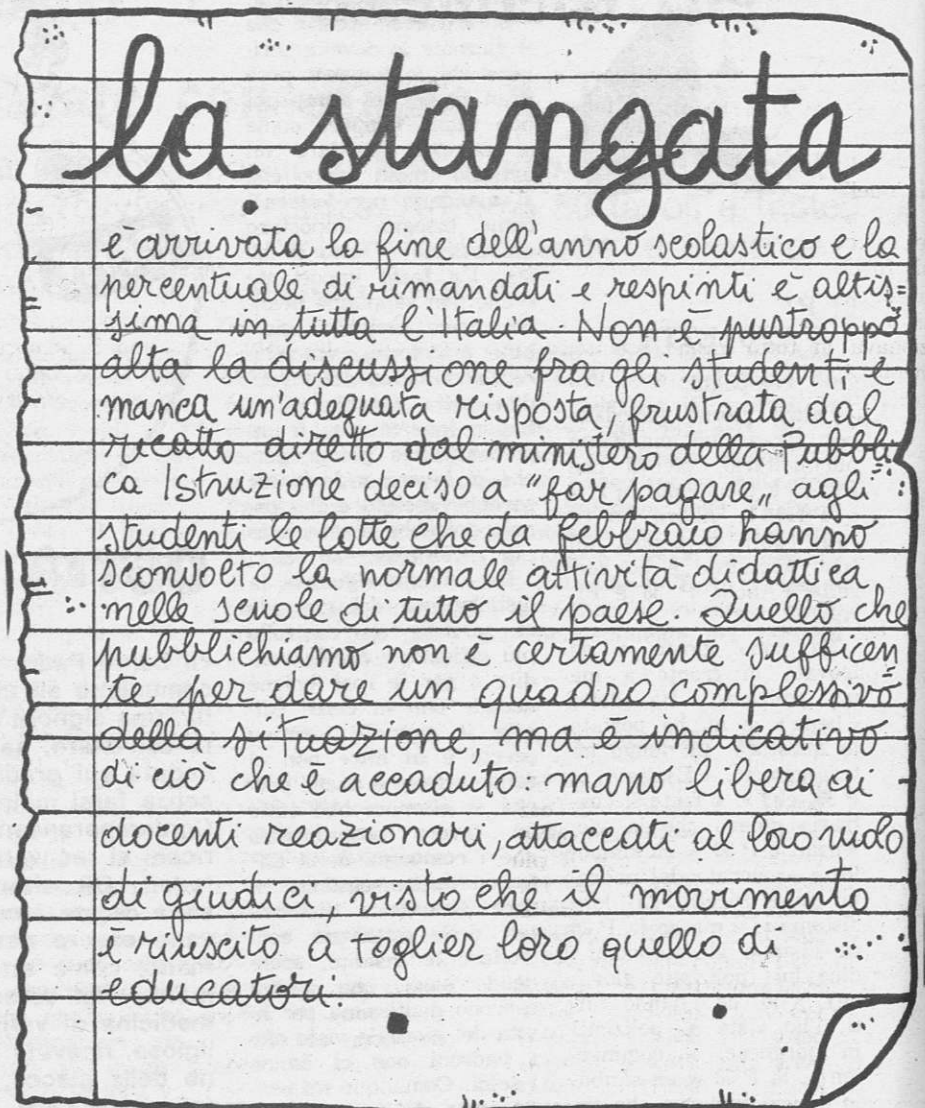 la stangata
è arrivata la fine dell'anno scolastico e la
percentuale di rimandati e respinti è altis=
sima in tutta l'Italia. Non è purtroppo
alta la discussione fra gli studenti e
manca un'adeguata risposta, frustrata dal
ricatto diretto dal ministero della Pubbli
ca Istruzione deciso a "far pagare„ agli
studenti le lotte che da febbraio hanno
sconvolto la normale attività didattica
nelle scuole di tutto il paese. Quello che
pubblichiamo non è certamente sufficen
te per dare un quadro complessivo
della situazione, ma è indicativo
di ciò che è accaduto: mano libera ai -
docenti reazionari, attaccati al loro ruolo
di giudici, visto che il movimento
è riuscito a toglier loro quello di
educatori.